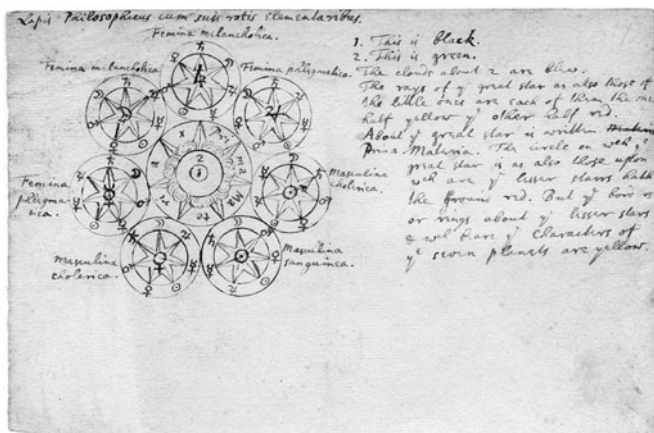 Lapis Philosophicus cum suis rotis elementaribus.
Femina melancholica.
Femina melancholica
Femina phlegmatica.
Femina
phlegma
tica.
Masculina
cholerica.
Masculina
cholerica.
Masculina
sanguinea.
Pri
ma
Ma
te
ri
a
2
1
1. This is black.
2. This is green.
The clouds about 2 are blew.
The rays of ye great star as also those of
the little ones are each of them the one
half yellow ye other half red.
About ye great star is written
Prima Materia. The circle on wch ye
great star is as also those upon
wch are ye lesser starrs hath
the ground red. But ye borders
or rings about ye lesser stars
& wch beare ye characters of
ye seven planets are yellow.